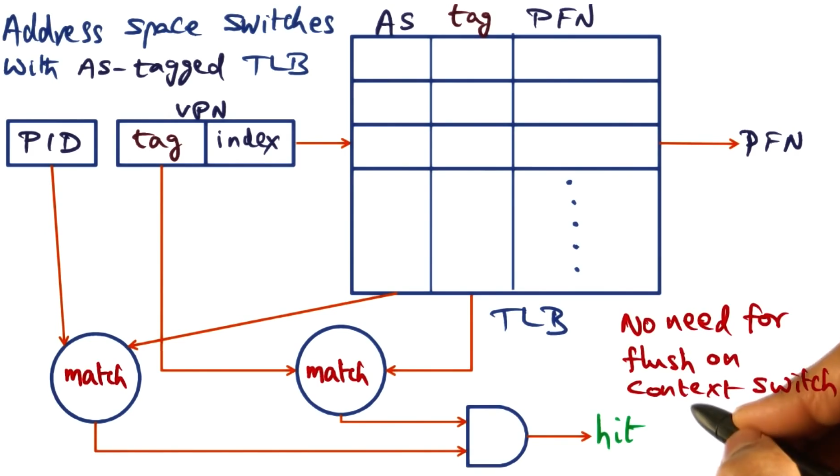 Address space switches
with AS-tagged TLB
AS tag PFN
VPN
PID tag index
PFN
TLB
match
match
No need for
flush on
context switch
hit